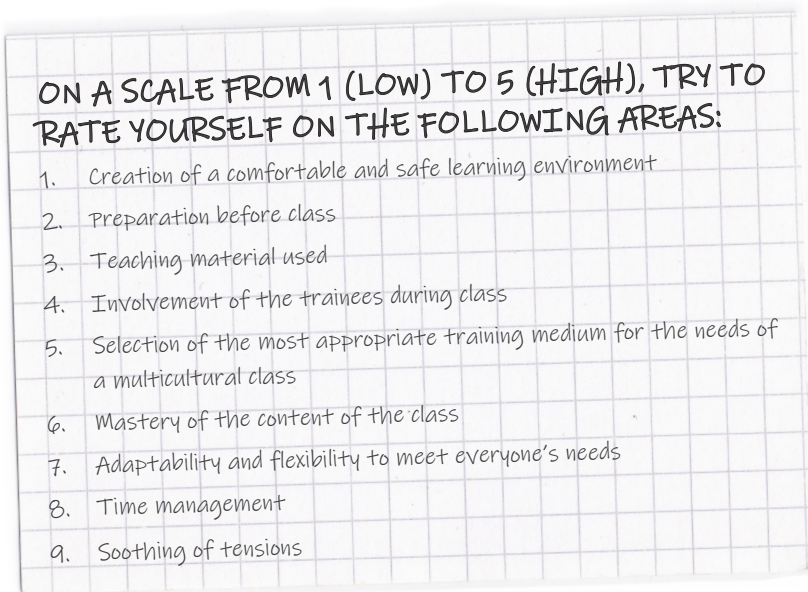 ON A SCALE FROM 1 (LOW) TO 5 (HIGH), TRY TO
RATE YOURSELF ON THE FOLLOWING AREAS:
1. Creation of a comfortable and safe learning environment
2. Preparation before class
3. Teaching material used
4. Involvement of the trainees during class
5. Selection of the most appropriate training medium for the needs of
a multicultural class
6. Mastery of the content of the class
7. Adaptability and flexibility to meet everyone's needs
8. Time management
9. Soothing of tensions